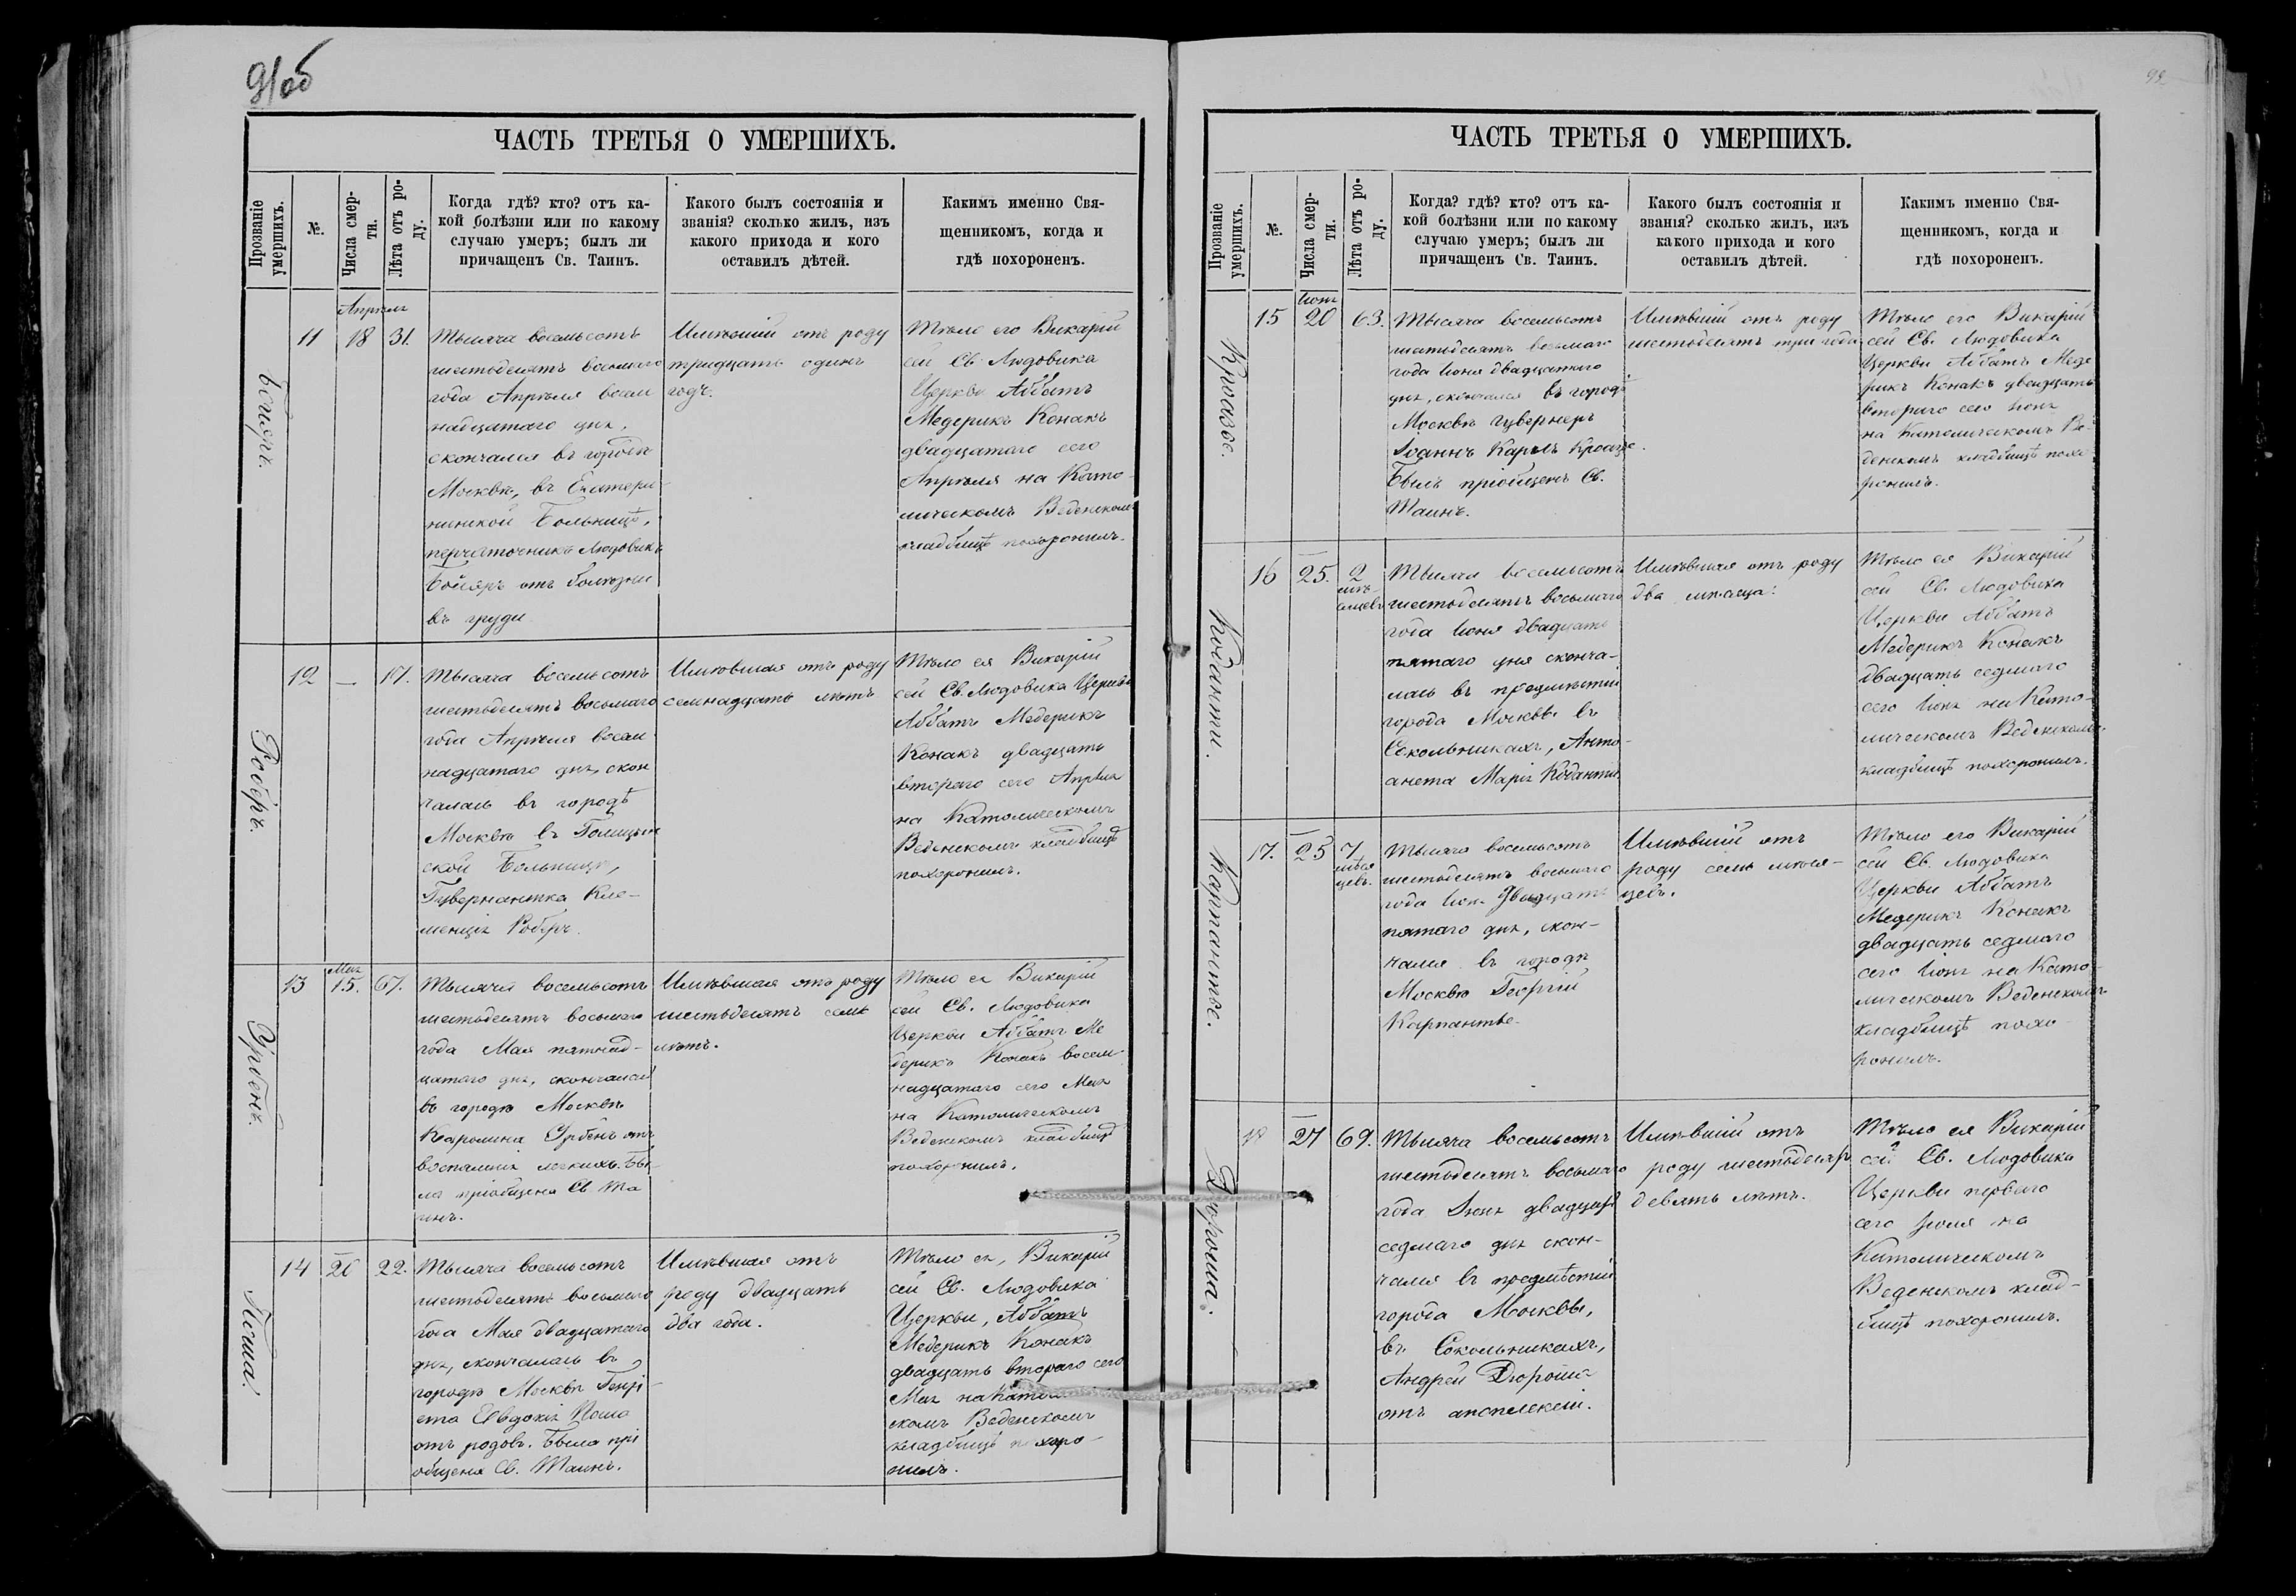 91об
ЧАСТЬ ТРЕТЬЯ О УМЕРШИХЪ.
Прозваніе умершихъ.
№.
Числа смерти.
Лѣта отъ роду.
Когда гдѣ? кто? отъ ка-
кой болѣзни или по какому
случаю умеръ; былъ ли
причащенъ Св. Таинъ.
Какого былъ состоянія и
званія? сколько жилъ, изъ
какого прихода и кого
оставилъ дѣтей.
Какимъ именно Свя-
щенникомъ, когда и
гдѣ похороненъ.
Апрѣля
11 18 31.
Тысяча восемьсотъ
шестьдесятъ восьмаго
года Апрѣля восем
надцатаго дня,
скончался въ городѣ
Москвѣ, въ Екатери-
нинской Больницѣ,
перчаточникъ Людовикъ
отъ болѣзни
въ груди
Имѣвшій отъ роду
тридцать одинъ
годъ.
Тѣло его Викарій
сей Св. Людовика
Церкви Аббатъ
Медерикъ Конакъ
двадцатаго сего
Апрѣля на Като-
лическомъ Веденскомъ
кладбищѣ похоронилъ.
Роберъ.
12 — 17.
Тысяча восемьсотъ
шестьдесятъ восьмаго
года Апрѣля восем
надцатаго дня, скон
чалась въ городѣ
Москвѣ въ Голицын
ской Больницѣ,
Гувернантка Кле-
менція Роберъ.
Имѣвшая отъ роду
семнадцать лѣтъ
Тѣло ея Викарій
сей Св. Людовика Церкви
Аббатъ Медерикъ
Конакъ двадцать
втораго сего Апрѣля
на Католическомъ
Веденскомъ кладбищѣ
похоронилъ.
Урбенъ.
Мая
13 15. 67.
Тысяча восемьсотъ
шестьдесятъ восьмаго
года Мая пятнад-
цатаго дня, скончалась
въ городѣ Москвѣ
Каролина Урбенъ отъ
воспаленія легкихъ. Бы-
ла пріобщена Св. Та
инъ.
Имѣвшая отъ роду
шестьдесятъ семь
лѣтъ.
Тѣло ея Викарій
сей Св. Людовика
Церкви Аббатъ Ме
дерикъ Конакъ восем
надцатаго сего Мая
на Католическомъ
Веденскомъ кладбищѣ
похоронилъ.
Поша.
14 20 22.
Тысяча восемьсотъ
шестьдесятъ восьмаго
года Мая двадцатаго
дня, скончалась въ
городѣ Москвѣ Генрі-
ета Евдокія Поша
отъ родовъ. Была прі
общена Св. Таинъ.
Имѣвшая отъ
роду двадцать
два года.
Тѣло ея, Викарій
сей Св. Людовика
Церкви, Аббатъ
Медерикъ Конакъ
двадцать втораго сего
Мая на
скомъ Веденскомъ
кладбищѣ похоро-
нилъ.
ЧАСТЬ ТРЕТЬЯ О УМЕРШИХЪ.
Прозваніе умершихъ.
№.
Числа смерти.
Лѣта отъ роду.
Когда? гдѣ? кто? отъ ка-
кой болѣзни или по какому
случаю умеръ; былъ ли
причащенъ Св. Таинъ.
Какого былъ состоянія и
званія? сколько жилъ, изъ
какого прихода и кого
оставилъ дѣтей.
Какимъ именно Свя-
щенникомъ, когда и
гдѣ похороненъ.
Кроазве.
Іюня
15 20 63.
Тысяча восемьсотъ
шестьдесятъ восьмаго
года Іюня двадцатаго
дня, скончался въ городѣ
Москвѣ гувернеръ
Іоаннъ Карлъ
Былъ пріобщенъ Св.
Таинъ.
Имѣвшій отъ роду
шестьдесятъ три года
Тѣло его Викарій
сей Св. Людовика
Церкви Аббатъ Меде
рикъ Конакъ двадцать
втораго сего Іюня
на Католическомъ Ве-
денскомъ кладбищѣ похо
ронилъ.
Коданти.
16 25. 2
мѣ-
сяцевъ
Тысяча восемьсотъ
шестьдесятъ восьмаго
года Іюня двадцать
пятаго дня сконча-
лась въ предмѣстіи
города Москвы въ
Сокольникахъ, Анто-
анета Марія Кодантіи
Имѣвшая отъ роду
два мѣсяца.
Тѣло ея Викарій
сей Св. Людовика
Церкви Аббатъ
Медерикъ Конакъ
двадцать седмаго
сего Іюня на Като-
лическомъ Веденскомъ
кладбищѣ похоронилъ.
Карпантье.
17. 25 7
мѣся
цевъ.
Тысяча восемьсотъ
шестьдесятъ восьмаго
года Іюня двадцать
пятаго дня, скон-
чался въ городѣ
Москвѣ Георгій
Карпантье.
Имѣвшій отъ
роду семь мѣся-
цевъ.
Тѣло его Викарій
сей Св. Людовика
Церкви Аббатъ
Медерикъ Конакъ
двадцать седмаго
сего Іюня на Като-
лическомъ Веденскомъ
кладбищѣ похо-
ронилъ.
Дюроша.
18 27 69.
Тысяча восемьсотъ
шестьдесятъ восьмаго
года Іюня двадцать
седмаго дня скон-
чался въ предмѣстіи
города Москвы,
въ Сокольникахъ,
Андрей Дюроша
отъ апоплексіи.
Имѣвшій отъ
роду шестьдесятъ
девять лѣтъ.
Тѣло ея Викарій
сей Св. Людовика
Церкви перваго
сего Іюля на
Католическомъ
Веденскомъ клад-
бищѣ похоронилъ.